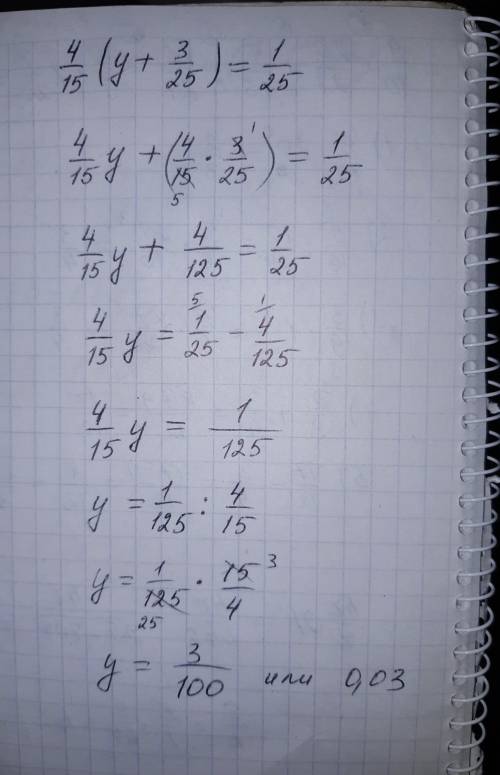 4/15 (y + 3/25) = 1/25
4/15 y + (4/15 5 · 3 1/25) = 1/25
4/15 y + 4/125 = 1/25
4/15 y = 5/ 1/25 - 1/ 4/125
4/15 y = 1/125
y = 1/125 : 4/15
y = 1/125 25 · 15 3/4
y = 3/100 или 0,03